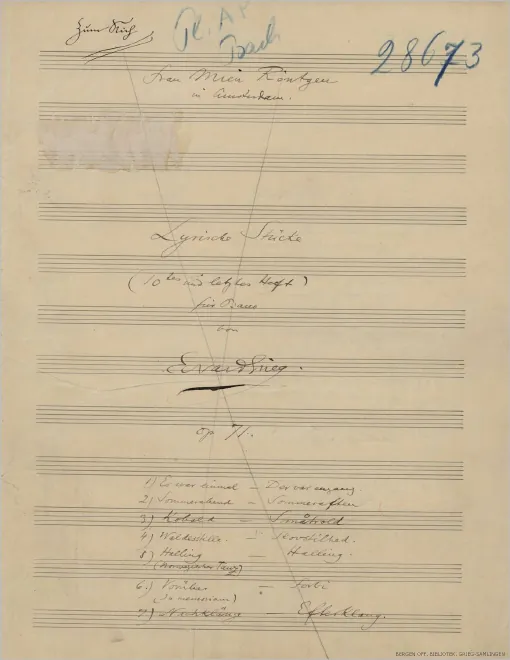 Zum Stich
Pl. A
28673
Frau Mien Röntgen
in Amsterdam.
Lyrische Stücke
(10tes und letztes Heft)
für Piano
von
Edvard Grieg.
op 71.
1) Es war einmal – Der var engang.
2) Sommerabend – Sommeraften
3) Kobold – Småtrold
4) Waldesstille. – Skovstilhed.
5) Halling – Halling.
(Norwegischer Tanz)
6.) Vorüber – Forbi
(In memoriam)
7.) Nachklänge – Efterklang.
BERGEN OFF. BIBLIOTEK, GRIEG-SAMLINGEN